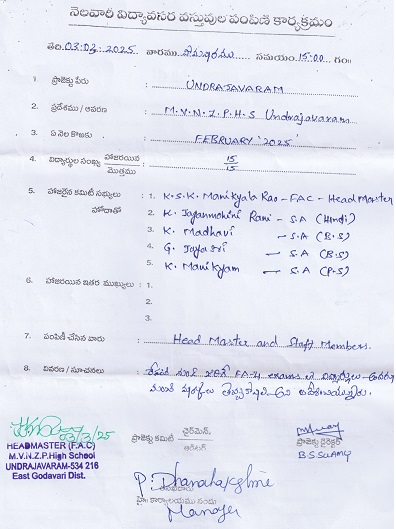 నెలవారీ విద్యావసర వస్తువుల పంపిణీ కార్యక్రమం
తేది. 03.03.2025 వారము సోమవారము సమయం. 15:00 గం॥
1. ప్రాజెక్టు పేరు : UNDRAJAVARAM
2. ప్రదేశము / ఆవరణ : M.V.N.Z.P.H.S Undrajavaram
3. ఏ నెల కొఱకు : FEBRUARY '2025'
4. విద్యార్థుల సంఖ్య హాజరయిన / మొత్తము : 15/15
5. హాజరైన కమిటీ సభ్యులు : 1. K.S.K. Manikyala Rao - FAC - Head Master
హోదాతో 2. K. Jaganmohini Rani - S.A (Hindi)
3. K. Madhavi - S.A (B.S)
4. G. Jaya Sri - S.A (B.S)
5. K. Manikyam - S.A (P.S)
6. హాజరయిన ఇతర ముఖ్యులు : 1.
2.
3.
7. పంపిణీ చేసిన వారు : Head Master and Staff Members.
8. వివరణ / సూచనలు : FA-4 exams
03/3/25
HEADMASTER (F.A.C)
M.V.N.Z.P.High School
UNDRAJAVARAM-534 216
East Godavari Dist.
ప్రాజెక్టు కమిటీ ఛైర్‌మెన్. / ఆడిటర్
ప్రాజెక్టు డైరెక్టర్
B.S.SWAMY
P. Dhanalakshmi
కార్యాలయము నందు
Manager